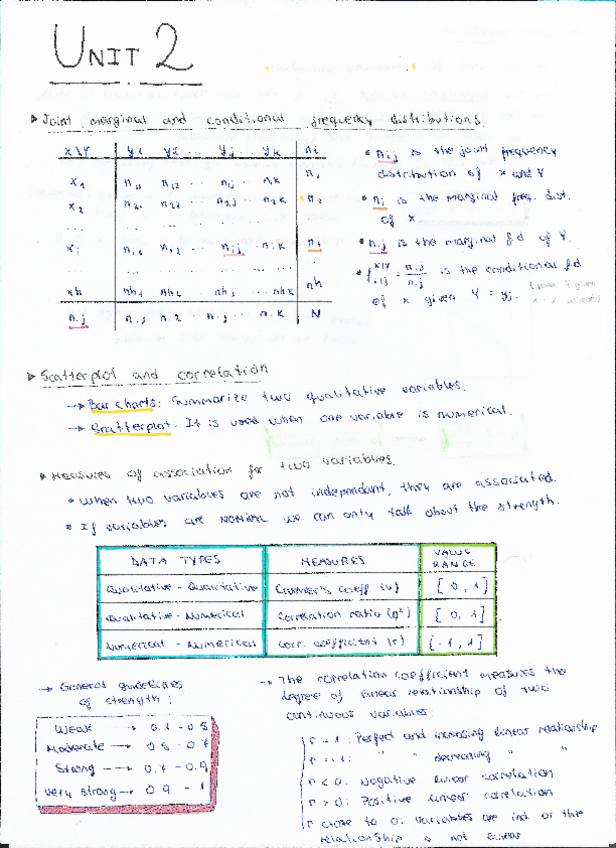 UNIT 2
▸ Joint, marginal and conditional frequency distributions.
X\Y y1 y2 ... yj ... yk ni
x1 n11 n12 ... nij ... n1k n1
x2 n21 n22 ... n2j ... n2k n2
... ... ... ...
xi ni1 ni2 ... nij ... nik ni
... ... ... ...
xh nh1 nh2 ... nhj ... nhk nh
n.j n.1 n.2 ... n.j ... n.k N
• nij is the joint frequency
distribution of X and Y
• ni is the marginal freq. dist.
of X
• n.j is the marginal fd of Y.
is the conditional fd
of X given Y = yj.
▸ Scatterplot and correlation
→ Bar charts: Summarize two qualitative variables.
→ Scatterplot: It is used when one variable is numerical.
▸ Measures of association for two variables.
• When two variables are not independant, they are associated.
• If variables are NOMINAL we can only talk about the strength.
DATA TYPES MEASURES VALUE RANGE
Qualitative - Qualitative Crammer's coeff (v) [0, 1]
Qualitative - Numerical Correlation ratio (η²) [0, 1]
Numerical - Numerical Corr. coefficient (r) [-1, 1]
→ General guidelines
of strength:
Weak → 0.1 - 0.5
Moderate → 0.5 - 0.7
Strong → 0.7 - 0.9
Very strong → 0.9 - 1
→ The correlation coefficient measures the
degree of linear relationship of two
continuous variables:
r = 1: Perfect and increasing linear relationship
r = -1: " " decreasing " "
r < 0: Negative linear correlation
r > 0: Positive linear correlation
r close to 0: variables are ind or the
relationship is not linear